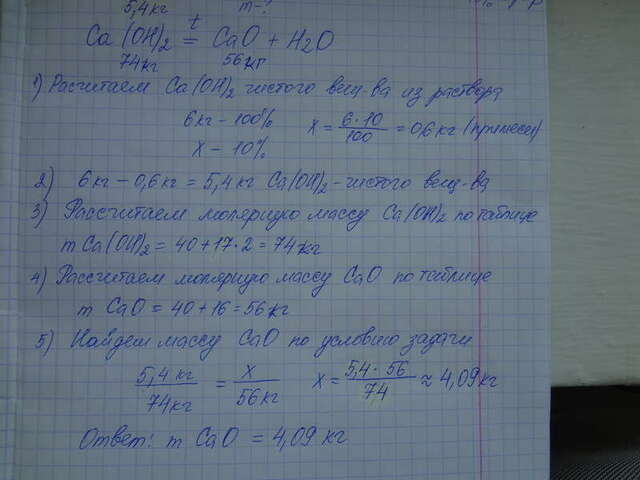 5,4кг m-?
t
Ca(OH)₂ = CaO + H₂O
74кг 56кг
1) Расчитаем Ca(OH)₂ чистого вещ-ва из раствора
6 кг – 100% x = 6·10/100 = 0,6 кг (примеси)
x – 10%
2) 6кг – 0,6кг = 5,4кг Ca(OH)₂ – чистого вещ-ва
3) Рассчитаем молярную массу Ca(OH)₂ по таблице
m Ca(OH)₂ = 40+17·2 = 74кг
4) Рассчитаем молярную массу CaO по таблице
m CaO = 40+16=56кг
5) Найдем массу CaO по условию задачи
5,4 кг/74кг = x/56кг x = 5,4·56/74 ≈ 4,09кг
Ответ: m CaO = 4,09 кг